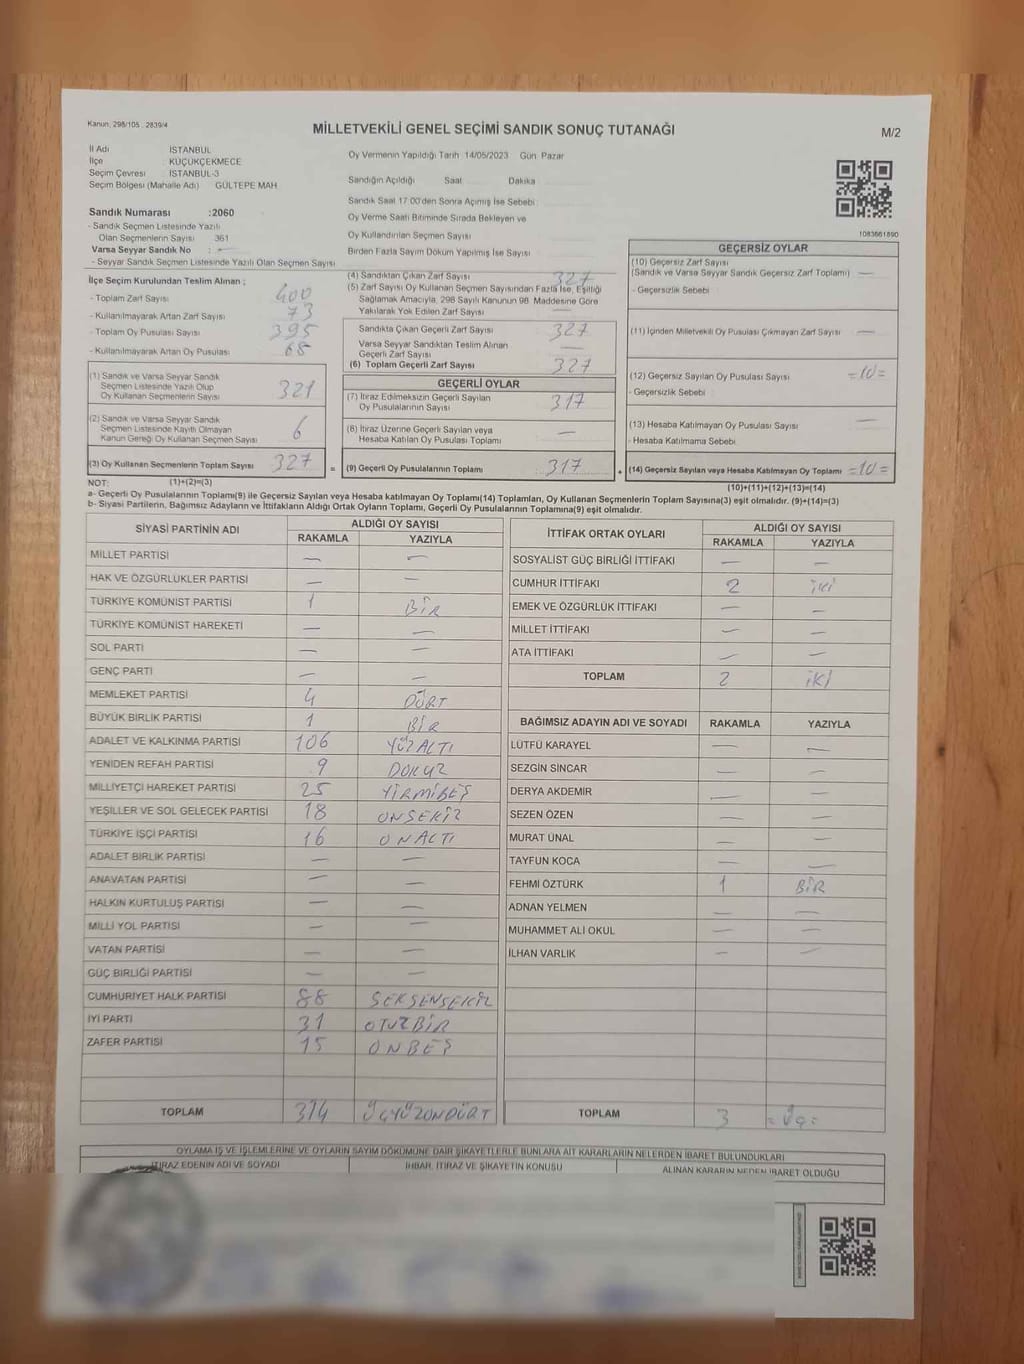 Kanun: 298/105 , 2839/4
MİLLETVEKİLİ GENEL SEÇİMİ SANDIK SONUÇ TUTANAĞI
M/2
İl Adı İSTANBUL
İlçe KÜÇÜKÇEKMECE
Seçim Çevresi : İSTANBUL-3
Seçim Bölgesi (Mahalle Adı) GÜLTEPE MAH
Sandık Numarası :2060
- Sandık Seçmen Listesinde Yazılı
Olan Seçmenlerin Sayısı 361
Varsa Seyyar Sandık No : -
- Seyyar Sandık Seçmen Listesinde Yazılı Olan Seçmen Sayısı
Oy Vermenin Yapıldığı Tarih 14/05/2023 Gün Pazar
Sandığın Açıldığı Saat Dakika
Sandık Saat 17:00'den Sonra Açılmış İse Sebebi
Oy Verme Saati Bitiminde Sırada Bekleyen ve
Oy Kullandırılan Seçmen Sayısı
Birden Fazla Sayım Döküm Yapılmış İse Sayısı
1083661890
İlçe Seçim Kurulundan Teslim Alınan ;
- Toplam Zarf Sayısı 400
- Kullanılmayarak Artan Zarf Sayısı 73
- Toplam Oy Pusulası Sayısı 395
- Kullanılmayarak Artan Oy Pusulası 68
(1) Sandık ve Varsa Seyyar Sandık
Seçmen Listesinde Yazılı Olup
Oy Kullanan Seçmenlerin Sayısı 321
(2) Sandık ve Varsa Seyyar Sandık
Seçmen Listesinde Kayıtlı Olmayan
Kanun Gereği Oy Kullanan Seçmen Sayısı 6
(3) Oy Kullanan Seçmenlerin Toplam Sayısı 327
(4) Sandıktan Çıkan Zarf Sayısı 327
(5) Zarf Sayısı Oy Kullanan Seçmen Sayısından Fazla İse, Eşitliği
Sağlamak Amacıyla, 298 Sayılı Kanunun 98. Maddesine Göre
Yakılarak Yok Edilen Zarf Sayısı —
Sandıkta Çıkan Geçerli Zarf Sayısı 327
Varsa Seyyar Sandıktan Teslim Alınan
Geçerli Zarf Sayısı —
(6) Toplam Geçerli Zarf Sayısı 327
GEÇERLİ OYLAR
(7) İtiraz Edilmeksizin Geçerli Sayılan
Oy Pusulalarının Sayısı 317
(8) İtiraz Üzerine Geçerli Sayılan veya
Hesaba Katılan Oy Pusulası Toplamı —
= (9) Geçerli Oy Pusulalarının Toplamı 317
GEÇERSİZ OYLAR
(10) Geçersiz Zarf Sayısı
(Sandık ve Varsa Seyyar Sandık Geçersiz Zarf Toplamı) —
- Geçersizlik Sebebi
(11) İçinden Milletvekili Oy Pusulası Çıkmayan Zarf Sayısı —
(12) Geçersiz Sayılan Oy Pusulası Sayısı =10=
- Geçersizlik Sebebi
(13) Hesaba Katılmayan Oy Pusulası Sayısı —
- Hesaba Katılmama Sebebi
+ (14) Geçersiz Sayılan veya Hesaba Katılmayan Oy Toplamı =10=
NOT: (1)+(2)=(3)
(10)+(11)+(12)+(13)=(14)
a- Geçerli Oy Pusulalarının Toplamı(9) ile Geçersiz Sayılan veya Hesaba katılmayan Oy Toplamı(14) Toplamları, Oy Kullanan Seçmenlerin Toplam Sayısına(3) eşit olmalıdır. (9)+(14)=(3)
b- Siyasi Partilerin, Bağımsız Adayların ve İttifakların Aldığı Ortak Oyların Toplamı, Geçerli Oy Pusulalarının Toplamına(9) eşit olmalıdır.
SİYASİ PARTİNİN ADI ALDIĞI OY SAYISI
RAKAMLA YAZIYLA
MİLLET PARTİSİ — —
HAK VE ÖZGÜRLÜKLER PARTİSİ — —
TÜRKİYE KOMÜNİST PARTİSİ 1 BİR
TÜRKİYE KOMÜNİST HAREKETİ — —
SOL PARTİ — —
GENÇ PARTİ — —
MEMLEKET PARTİSİ 4 DÖRT
BÜYÜK BİRLİK PARTİSİ 1 BİR
ADALET VE KALKINMA PARTİSİ 106 YÜZALTI
YENİDEN REFAH PARTİSİ 9 DOKUZ
MİLLİYETÇİ HAREKET PARTİSİ 25 YİRMİBEŞ
YEŞİLLER VE SOL GELECEK PARTİSİ 18 ONSEKİZ
TÜRKİYE İŞÇİ PARTİSİ 16 ONALTI
ADALET BİRLİK PARTİSİ — —
ANAVATAN PARTİSİ — —
HALKIN KURTULUŞ PARTİSİ — —
MİLLİ YOL PARTİSİ — —
VATAN PARTİSİ — —
GÜÇ BİRLİĞİ PARTİSİ — —
CUMHURİYET HALK PARTİSİ 88 SEKSENSEKİZ
İYİ PARTİ 31 OTUZBİR
ZAFER PARTİSİ 15 ONBEŞ
TOPLAM 314 ÜÇYÜZONDÖRT
İTTİFAK ORTAK OYLARI ALDIĞI OY SAYISI
RAKAMLA YAZIYLA
SOSYALİST GÜÇ BİRLİĞİ İTTİFAKI — —
CUMHUR İTTİFAKI 2 iki
EMEK VE ÖZGÜRLÜK İTTİFAKI — —
MİLLET İTTİFAKI — —
ATA İTTİFAKI — —
TOPLAM 2 iki
BAĞIMSIZ ADAYIN ADI VE SOYADI RAKAMLA YAZIYLA
LÜTFÜ KARAYEL — —
SEZGİN SİNCAR — —
DERYA AKDEMİR — —
SEZEN ÖZEN — —
MURAT ÜNAL — —
TAYFUN KOCA — —
FEHMİ ÖZTÜRK 1 BİR
ADNAN YELMEN — —
MUHAMMET ALİ OKUL — —
İLHAN VARLIK — —
TOPLAM 3 =Üç=
OYLAMA İŞ VE İŞLEMLERİNE VE OYLARIN SAYIM DÖKÜMÜNE DAİR ŞİKAYETLERLE BUNLARA AİT KARARLARIN NELERDEN İBARET BULUNDUKLARI
İTİRAZ EDENİN ADI VE SOYADI İHBAR, İTİRAZ VE ŞİKAYETİN KONUSU ALINAN KARARIN NEDEN İBARET OLDUĞU